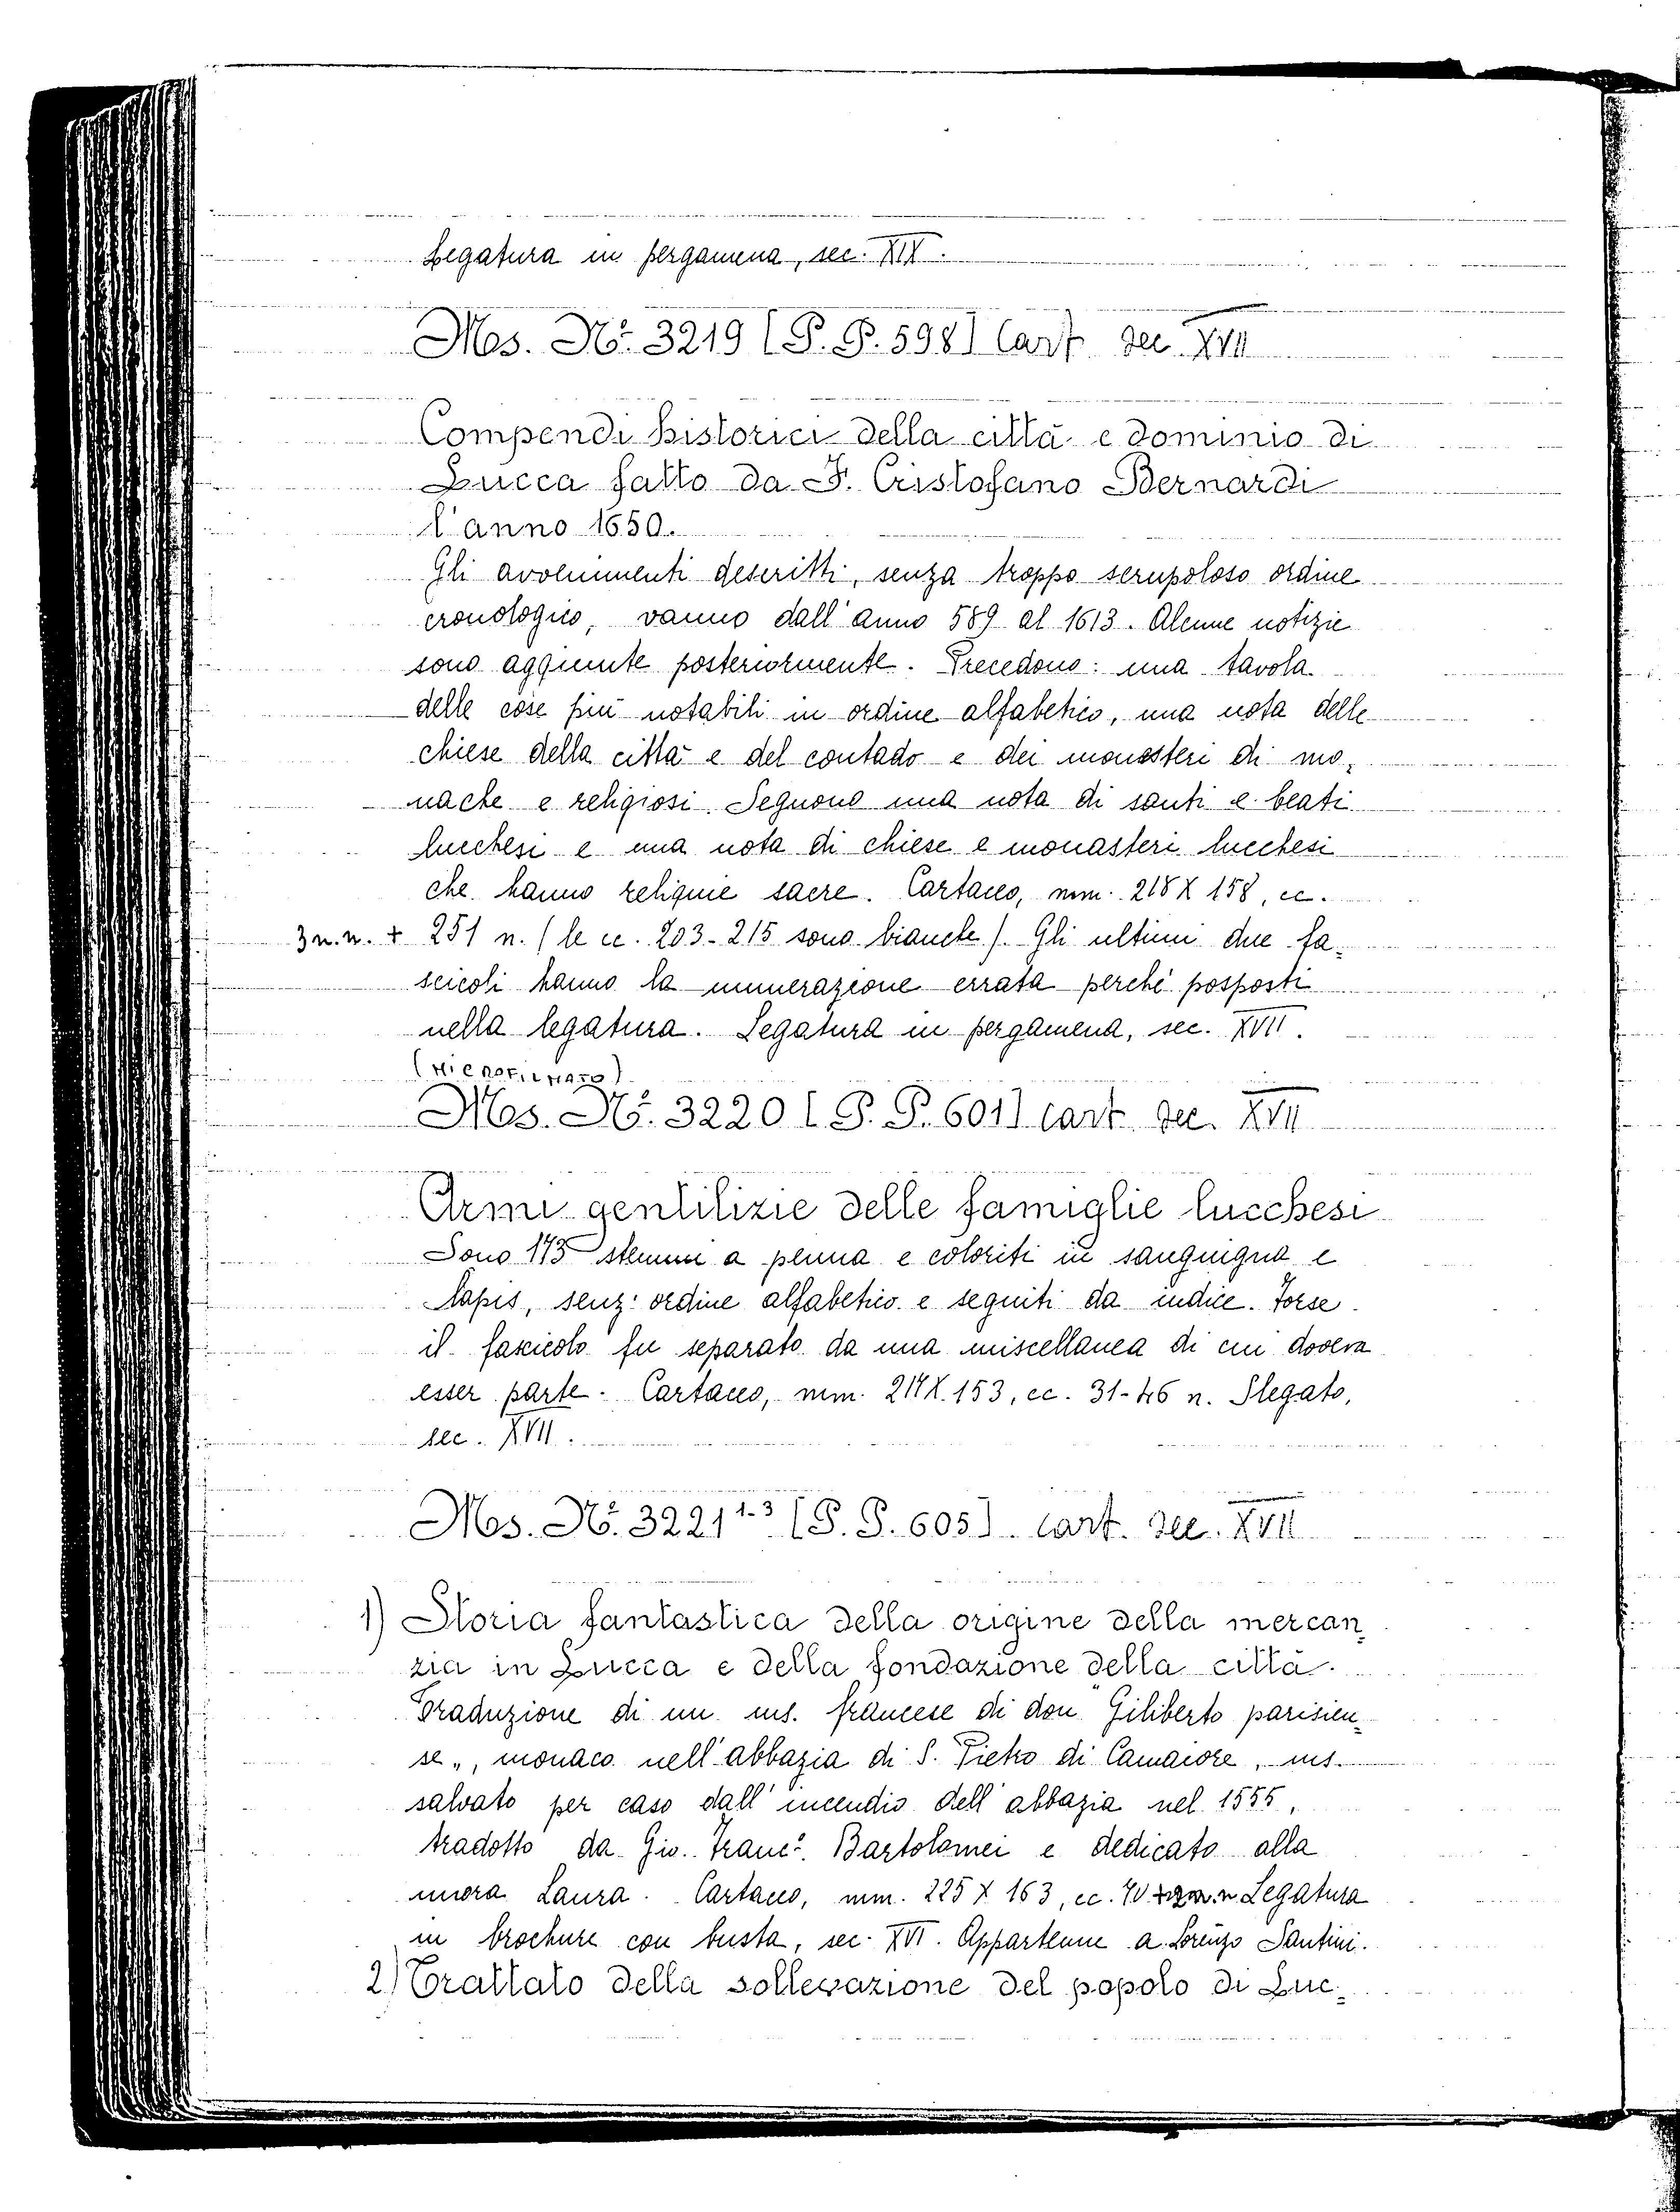 Legatura in pergamena, sec. XIX.
Mos. Nº. 3219 [P. P. 598] Cart sec. XVII
Compendi historici della città e dominio di
Lucca fatto da F. Cristofano Bernardi
l'anno 1650.
Gli avvenimenti descritti, senza troppo scrupoloso ordine
cronologico, vanno dall'anno 589 al 1613. Alcune notizie
sono aggiunte posteriormente. Precedono: una tavola
delle cose più notabili in ordine alfabetico, una nota delle
chiese della città e del contado e dei monasteri di mo=
nache e religiosi. Seguono una nota di santi e beati
lucchesi e una nota di chiese e monasteri lucchesi
che hanno reliquie sacre. Cartaceo, mm. 218 X 158, cc.
3 n.n. + 251 n. (le cc. 203-215 sono bianche). Gli ultimi due fa=
scicoli hanno la numerazione errata perché posposti
nella legatura. Legatura in pergamena, sec. XVII.
(MICROFILMATO)
Mos. Nº. 3220 [P. P. 601] cart sec. XVII
Armi gentilizie delle famiglie lucchesi
Sono 173 stemmi a penna e coloriti in sanguigna e
lapis, senz' ordine alfabetico e seguiti da indice. Forse
il fascicolo fu separato da una miscellanea di cui doveva
esser parte. Cartaceo, mm. 217 X 153, cc. 31-46 n. Slegato,
sec. XVII.
Mos. Nº. 3221 1-3 [P. P. 605]. cart. sec. XVII
1) Storia fantastica della origine della mercan=
zia in Lucca e della fondazione della città.
Traduzione di un ms. francese di don "Giliberto parisien=
se", monaco nell'abbazia di S. Pietro di Camaiore, ms.
salvato per caso dall'incendio dell'abbazia nel 1555,
tradotto da Gio. Franc.º Bartolomei e dedicato alla
nuora Laura. Cartaceo, mm. 225 X 163, cc. 70 + n.n Legatura
in brochure con busta, sec. XVI. Appartenne a Lorenzo Santini.
2) Trattato della sollevazione del popolo di Luc=